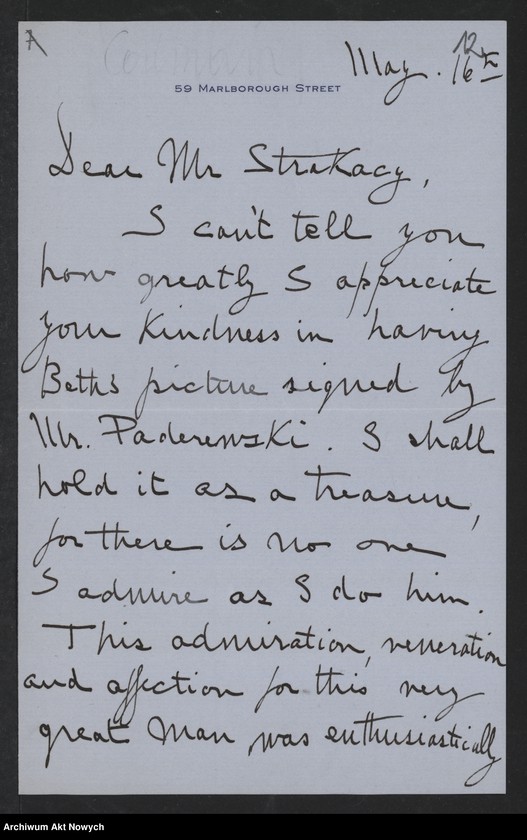 A
12
May. 16th
59 Marlborough Street
Dear Mr Strakacy,
I can't tell you
how greatly I appreciate
your kindness in having
Beth's picture signed by
Mr. Paderewski. I shall
hold it as a treasure,
for there is no one
I admire as I do him.
This admiration, veneration
and affection for this very
great man was enthusiastically
Archiwum Akt Nowych